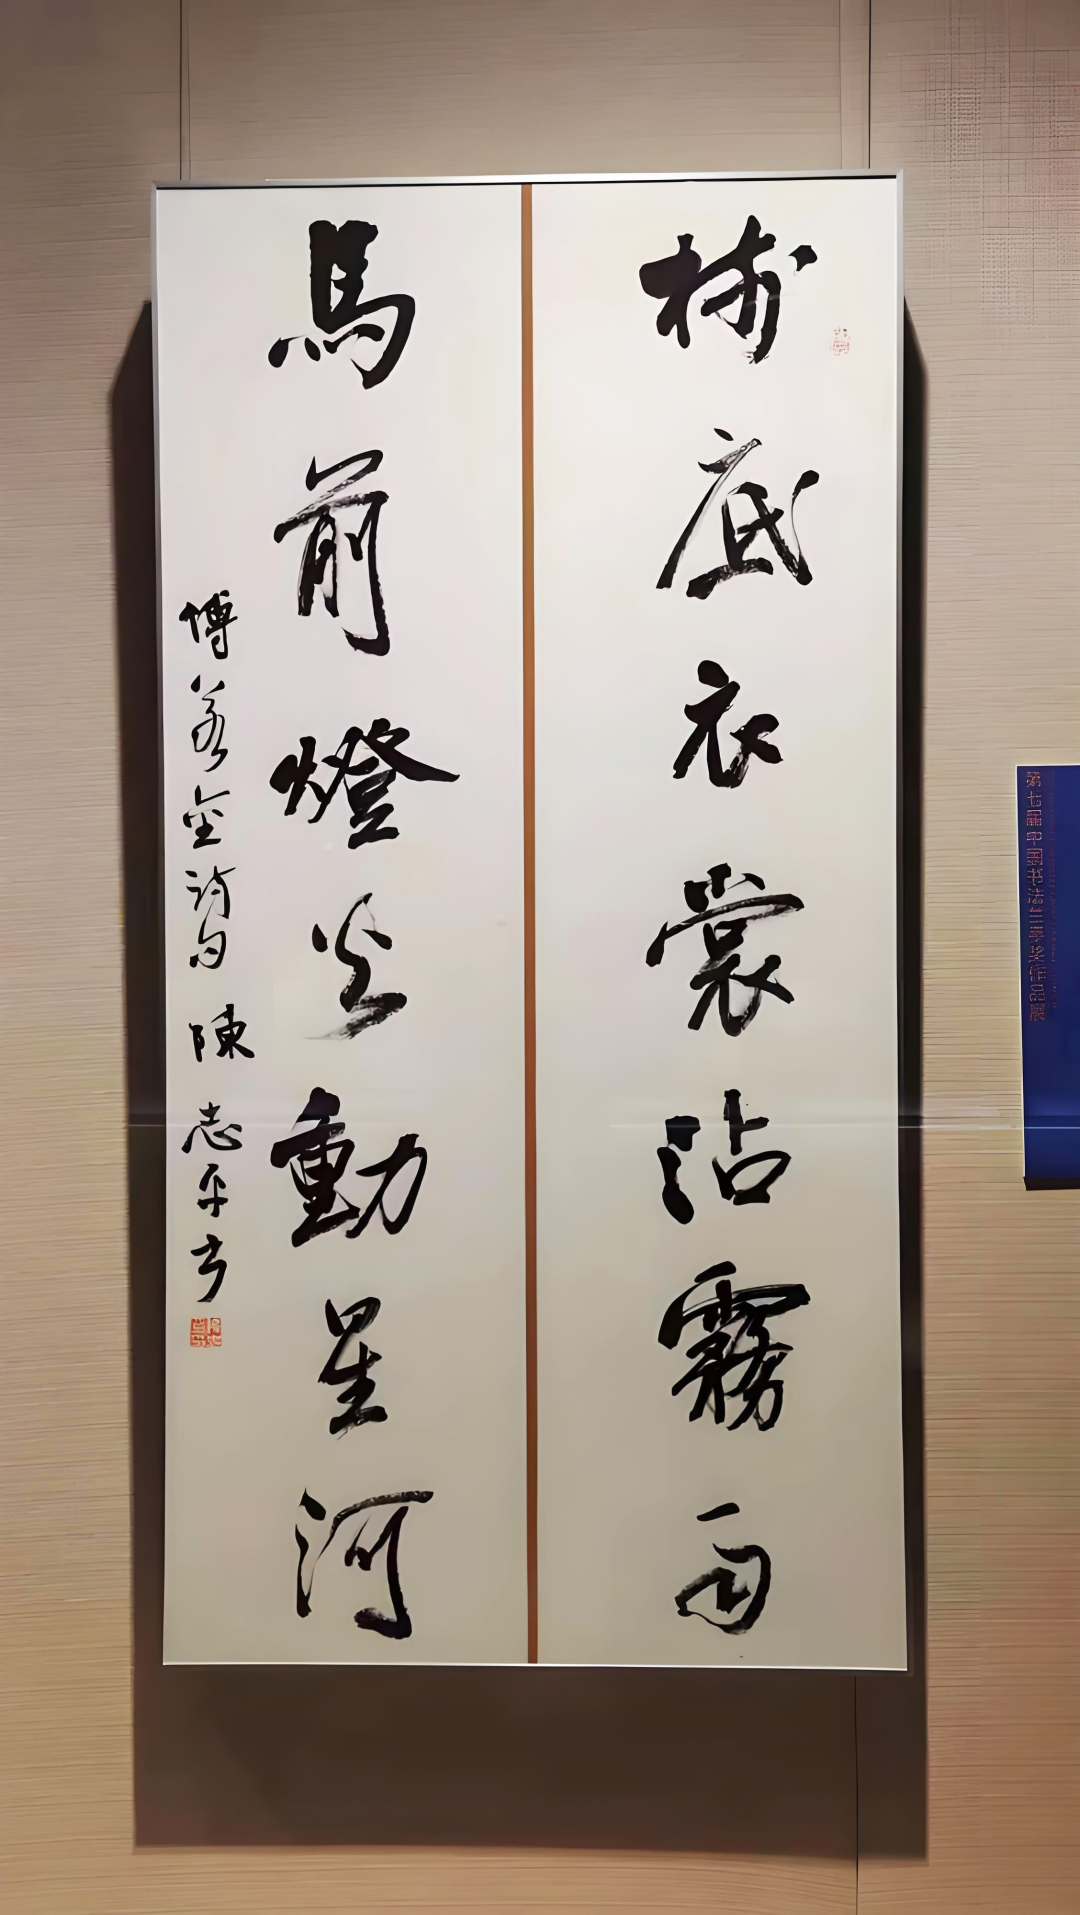 樹底衣裳沾霧雨
馬前燈火動星河
傅若金詩句 陳志平書
第七届中国书法兰亭奖作品展